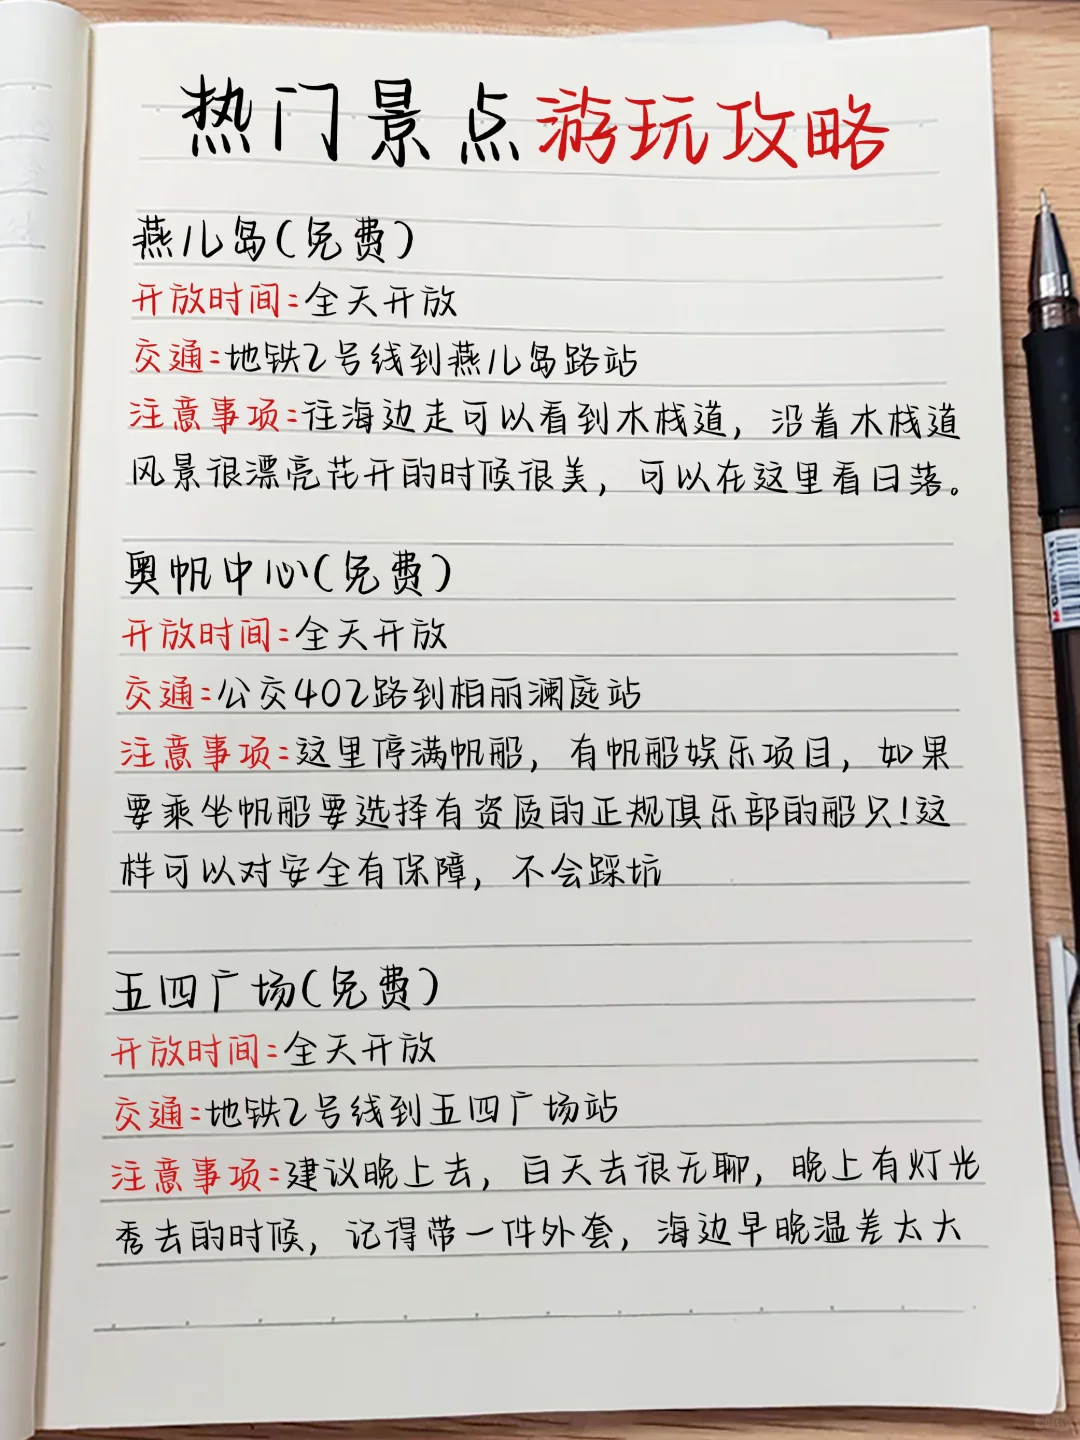 热门景点游玩攻略
燕儿岛(免费)
开放时间:全天开放
交通:地铁2号线到燕儿岛路站
注意事项:往海边走可以看到木栈道，沿着木栈道
风景很漂亮花开的时候很美，可以在这里看日落。
奥帆中心(免费)
开放时间:全天开放
交通:公交402路到柏丽澜庭站
注意事项:这里停满帆船，有帆船娱乐项目，如果
要乘坐帆船要选择有资质的正规俱乐部的船只!这
样可以对安全有保障，不会踩坑
五四广场(免费)
开放时间:全天开放
交通:地铁2号线到五四广场站
注意事项:建议晚上去，白天去很无聊，晚上有灯光
秀去的时候，记得带一件外套，海边早晚温差太大